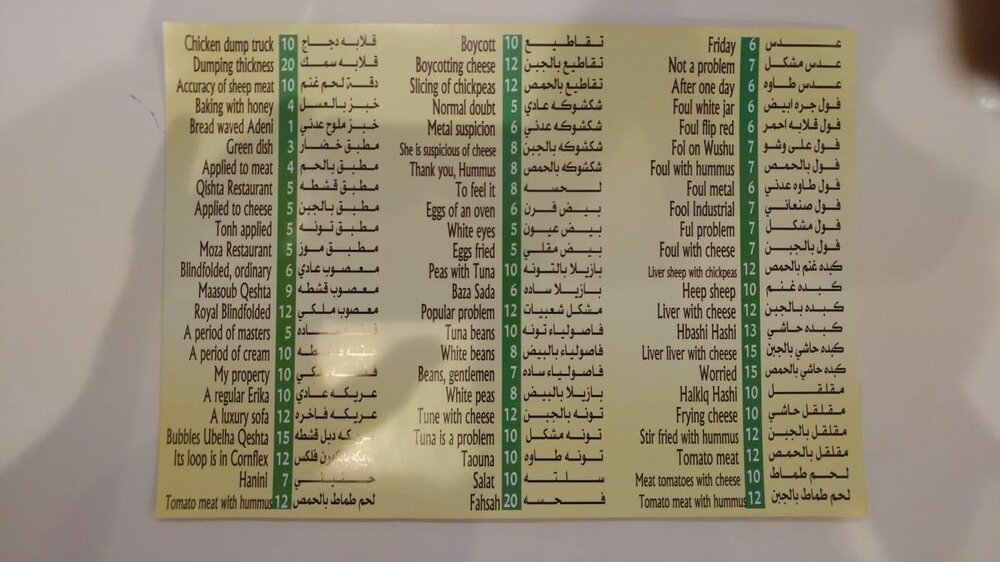 Chicken dump truck 10 قلابه دجاج
Dumping thickness 20 قلابه سمك
Accuracy of sheep meat 10 دقة لحم غنم
Baking with honey 4 خبز بالعسل
Bread waved Adeni 1 خبز ملوح عدني
Green dish 3 مطبق خضار
Applied to meat 4 مطبق بالحم
Qishta Restaurant 5 مطبق قشطه
Applied to cheese 5 مطبق بالجبن
Tonh applied 5 مطبق تونه
Moza Restaurant 5 مطبق موز
Blindfolded, ordinary 6 معصوب عادي
Maasoub Qeshta 9 معصوب قشطه
Royal Blindfolded 12 معصوب ملكي
A period of masters 5 ساده
A period of cream 10
My property 10
A regular Erika 10 عريكه عادي
A luxury sofa 12 عريكه فاخره
Bubbles Ubelha Qeshta 15 دبل قشطه
Its loop is in Cornflex 12 فلكس
Hanini 7 حنيني
Tomato meat with hummus 12 لحم طماط بالحمص
Boycott 10 تقاطيع
Boycotting cheese 12 تقاطيع بالجبن
Slicing of chickpeas 12 تقاطيع بالحمص
Normal doubt 5 شكشوكه عادي
Metal suspicion 6 شكشوكه عدني
She is suspicious of cheese 8 شكشوكه بالجبن
Thank you, Hummus 8 شكشوكه بالحمص
To feel it 8 لحسه
Eggs of an oven 6 بيض فرن
White eyes 5 بيض عيون
Eggs fried 5 بيض مقلي
Peas with Tuna 10 بازيلا بالتونه
Baza Sada 6 بازيلا ساده
Popular problem 12 مشكل شعبيات
Tuna beans 10 فاصولياء تونه
White beans 8 فاصولياء بالبيض
Beans, gentlemen 7 فاصولياء ساده
White peas 8 بازيلا بالبيض
Tune with cheese 12 تونه بالجبن
Tuna is a problem 10 تونه مشكل
Taouna 10 تونه طاوه
Salat 10 سلته
Fahsah 20 فحسه
Friday 6 عدس
Not a problem 7 عدس مشكل
After one day 6 عدس طاوه
Foul white jar 6 فول جره ابيض
Foul flip red 6 فول قلابه احمر
Fol on Wushu 7 فول على وشو
Foul with hummus 7 فول بالحمص
Foul metal 6 فول طاوه عدني
Fool Industrial 7 فول صنعاني
Ful problem 7 فول مشكل
Foul with cheese 7 فول بالجبن
Liver sheep with chickpeas 12 كبده غنم بالحمص
Heep sheep 10 كبده غنم
Liver with cheese 12 كبده بالجبن
Hbashi Hashi 13 كبده حاشي
Liver liver with cheese 15 كبده حاشي بالجبن
Worried 15 كبده حاشي بالحمص
Halklq Hashi 10 مقلقل
Frying cheese 10 مقلقل حاشي
Stir fried with hummus 12 مقلقل بالجبن
Tomato meat 12 مقلقل بالحمص
Meat tomatoes with cheese 10 لحم طماط
Tomato meat with hummus 12 لحم طماط بالجبن